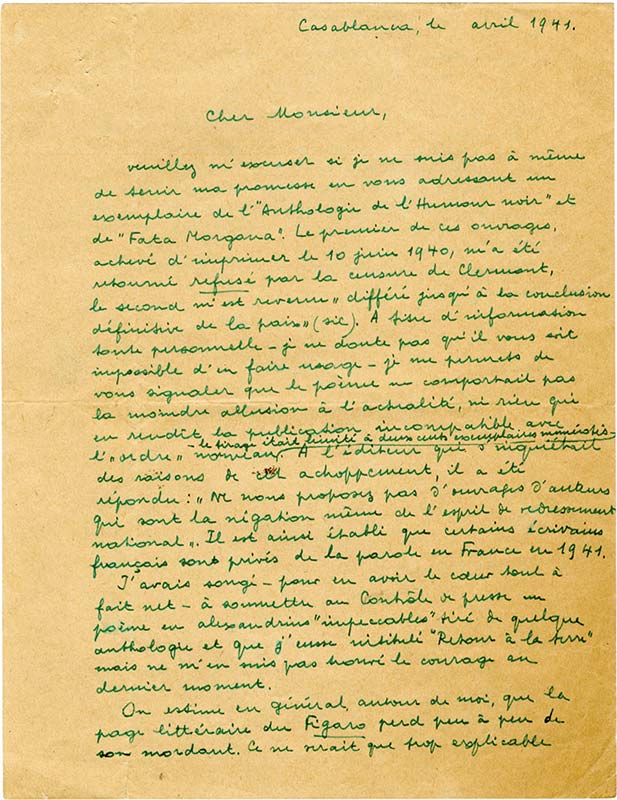 Casablanca, le avril 1941.
Cher Monsieur,
veuillez m'excuser si je ne suis pas à même
de tenir ma promesse en vous adressant un
exemplaire de l'"Anthologie de l'Humour noir" et
de "Fata Morgana". Le premier de ces ouvrages,
achevé d'imprimer le 10 juin 1940, m'a été
retourné refusé par la censure de Clermont,
le second m'est revenu „ différé jusqu'à la conclusion
définitive de la paix „ (sic). A titre d'information
toute personnelle - je ne doute pas qu'il vous soit
impossible d'en faire usage - je me permets de
vous signaler que le poème ne comportait pas
la moindre allusion à l'actualité, ni rien qui
en rendît la publication incompatible avec
- le tirage était limité à deux cents exemplaires numérotés -
l'„ordre„ nouveau. A l'éditeur qui s'inquiétait
des raisons de cet achoppement, il a été
répondu : „ Ne nous proposez pas d'ouvrages d'auteurs
qui sont la négation même de l'esprit de redressement
national „. Il est ainsi établi que certains écrivains
français sont privés de la parole en France en 1941.
J'avais songé - pour en avoir le cœur tout à
fait net - à soumettre au Contrôle de presse un
poème en alexandrins "impeccables" tiré de quelque
anthologie et que j'eusse intitulé "Retour à la terre"
mais ne m'en suis pas trouvé le courage au
dernier moment.
On estime en général, autour de moi, que la
page littéraire du Figaro perd peu à peu de
son mordant. Ce ne serait que trop explicable